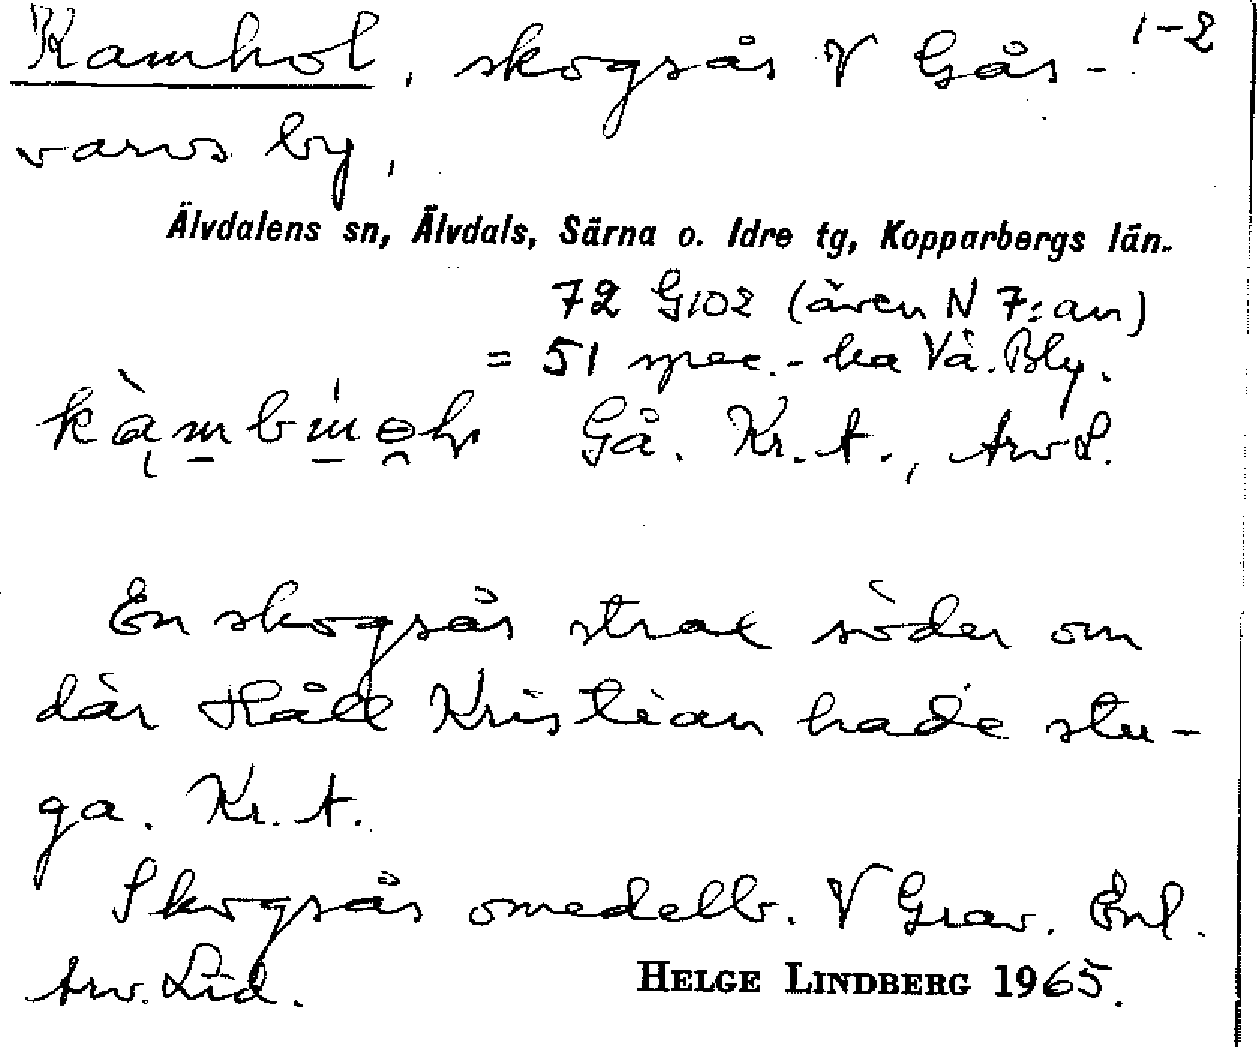 Kamhol, skogsås V Gås- 1-2
varvs by,
Älvdalens sn, Älvdals, Särna o. Idre tg, Kopparbergs län.
72 G102 (även N 7:an)
= 51 spec.-ka Vä. Bly.
Gå. Kr. A., Arv L.
En skogsås strax söder om
där Håll Kristian hade stu-
ga. Kr. A.
Skogsås omedelb. V Grav. Enl.
Arv. Lid.
HELGE LINDBERG 1965.